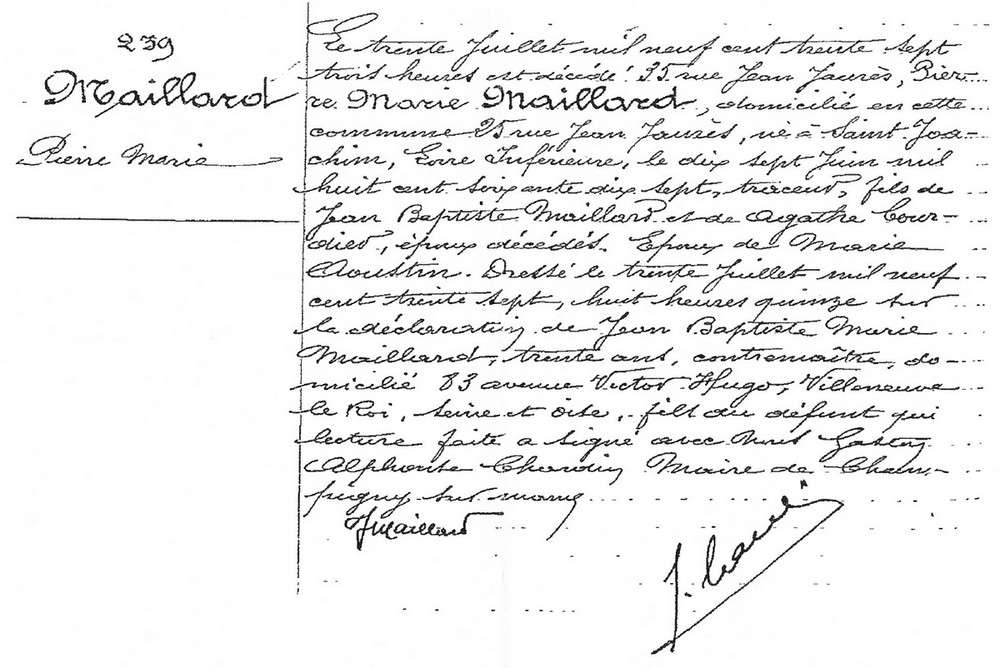 239
Maillard
Pierre Marie
Le trente Juillet mil neuf cent trente sept
trois heures est décédé 35 rue Jean Jaurès, Pier-
re Marie Maillard, domicilié en cette
commune 25 rue Jean Jaurès, né à Saint Joa-
chim, Loire Inférieure, le dix sept Juin mil
huit cent soixante dix sept, traceur, fils de
Jean Baptiste Maillard et de Agathe Cour-
dier, époux décédés. Epoux de Marie
Aoustin. Dressé le trente Juillet mil neuf
cent trente sept, huit heures quinze sur
la déclaration de Jean Baptiste Marie
Maillard, trente ans, contremaître, do-
micilié 83 avenue Victor Hugo, Villeneuve
le Roi, Seine et Oise, fils du défunt qui
lecture faite a signé avec Nous Gaston
Alphonse Chardin Maire de Cham-
pigny sur marne
JMaillard